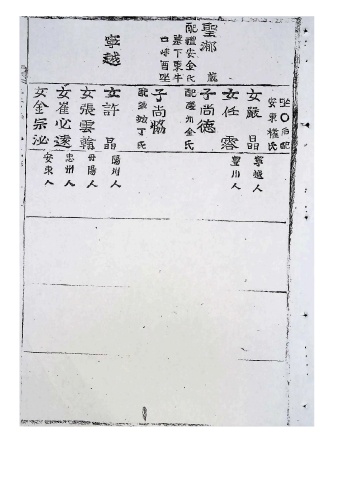 聖都
配禮安金氏
墓下東牛
口峙酉坐
寧越
坐○后配
安東權氏
女嚴晶
寧越人
女任
豐川人
子尚德
金氏
子尚
丁氏
女許晶
陽川人
女張雲翰
丹陽人
女崔必遂
忠州人
女金宗泌
安東人